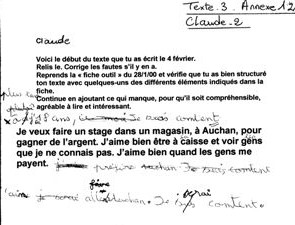 Texte.3. Annexe 12
Claude-2
Claude
Voici le début du texte que tu as écrit le 4 février.
Relis le. Corrige les fautes s'il y en a.
Reprends la « fiche outil » du 28/1/00 et vérifie que tu as bien structuré
ton texte avec quelques-uns des différents éléments indiqués dans la
fiche.
Continue en ajoutant ce qui manque, pour qu'il soit compréhensible,
agréable à lire et intéressant.
ans, Je suis content
Je veux faire un stage dans un magasin, à Auchan, pour
gagner de l'argent. J'aime bien être à caisse et voir gens
que je ne connais pas. J'aime bien quand les gens me
payent. je préfère auchan Je suis content
Auchan. Je content.